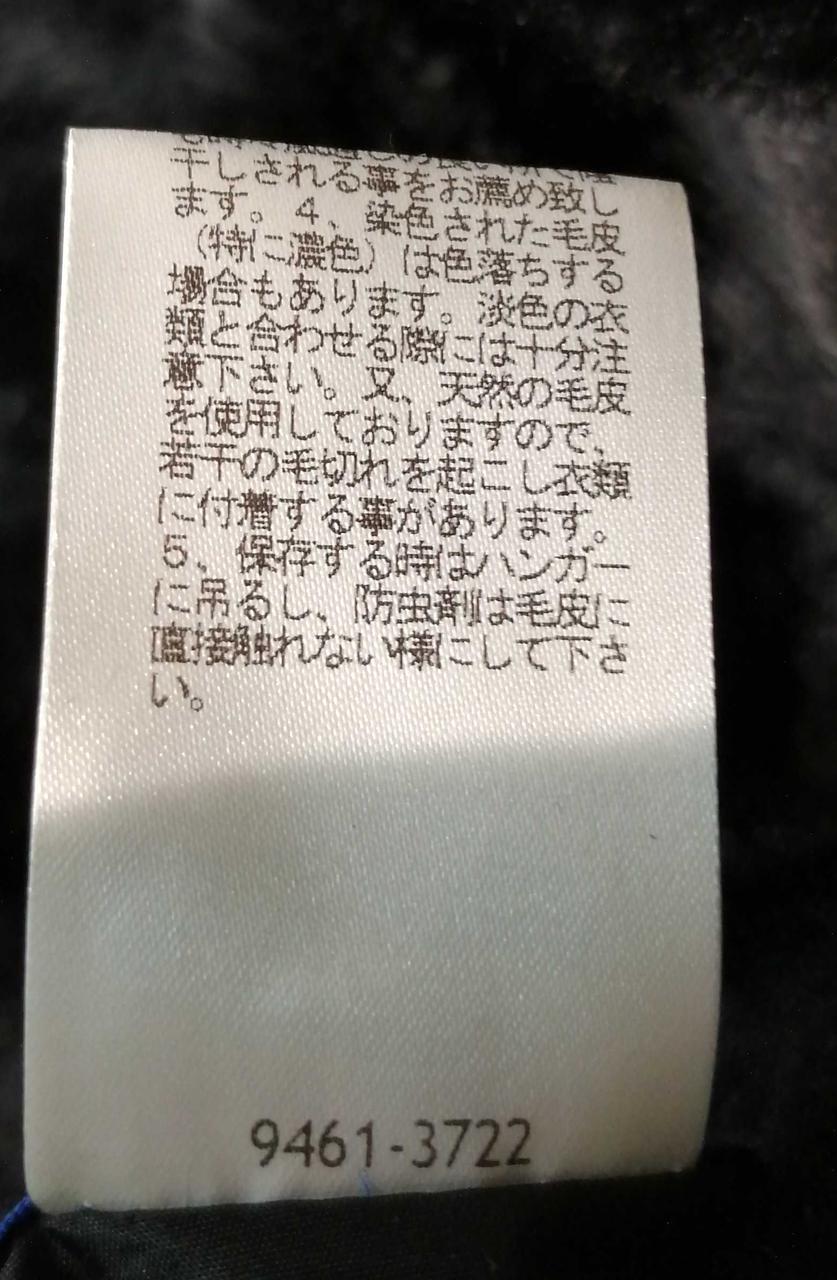 干しされる事をお薦め致し
ます。4、染色された毛皮
（特に濃色）は色落ちする
場合もあります。淡色の衣
類と合わせる際には十分注
意下さい。又、天然の毛皮
を使用しておりますので、
若干の毛切れを起こし衣類
に付着する事があります。
5、保存する時はハンガー
に吊るし、防虫剤は毛皮に
直接触れない様にして下さ
い。
9461-3722